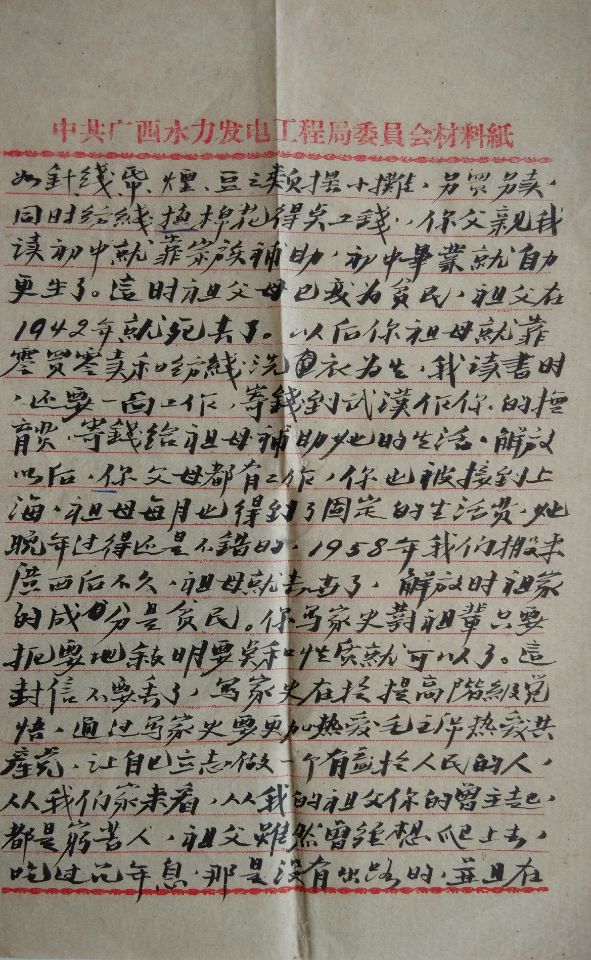 中共广西水力发电工程局委員会材料紙
如針线帶、煙、豆之類擺小攤，另買另卖，
同时纺綫 棉花得矣工錢，你父親我
读初中就靠家族補助，初中畢業就自力
更生了。這时祖父母已成为貧民，祖父在
1942年就死去了。以后你祖母就靠
零買零卖和纺綫洗衣为生，我读書时
，还要一面工作，寄錢到武漢作你的撫
育費，寄錢給祖母補助她的生活。解放
以后，你父母都有工作，你也被接到上
海，祖母每月也得到了固定的生活费，她
晚年过得还是不錯的，1958年我们搬来
廣西后不久，祖母就去世了，解放时祖家
的成分是貧民。你写家史對祖輩只要
扼要地敍明要点和性质就可以了。這
封信不要丢了，写家史在於提高階級覚
悟，通过写家史要更加热爱毛主席热爱共
產党，让自己立志做一个有益於人民的人，
从我们家来看，从我的祖父你的曾主起，
都是窮苦人，祖父雖然曾經想爬上去，
吃过几年息，那是没有出路的，並且在